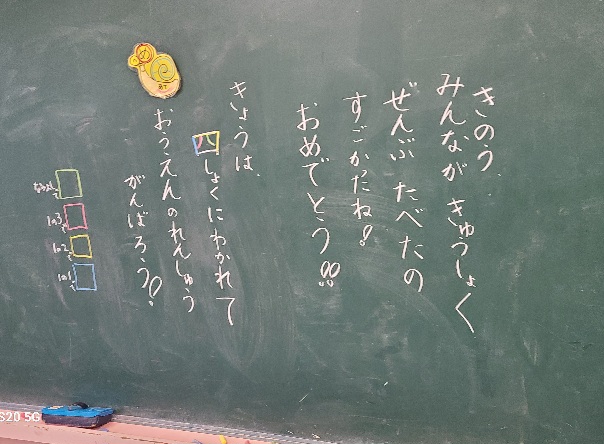 きのう、
みんなが きゅうしょく
ぜんぶ たべたの
すごかったね!
おめでとう!!
きょうは、
四しょくにわかれて
おうえんのれんしゅう
がんばろう!
1の1
1の2
1の3
S20 5G